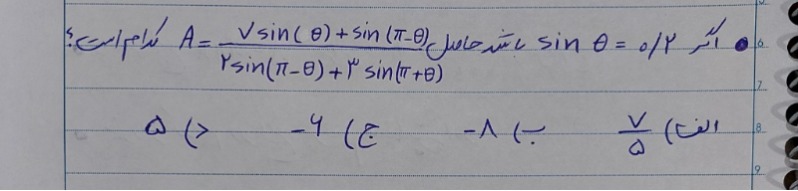 اگر sin θ = ۰/۲ باشد حاصل A = (۷sin(θ)+sin(π-θ))/(۲sin(π-θ)+۳sin(π+θ)) کدام است؟
الف) ۷/۵ ب) -۸ ج) -۶ د) ۵
6
7
8
9